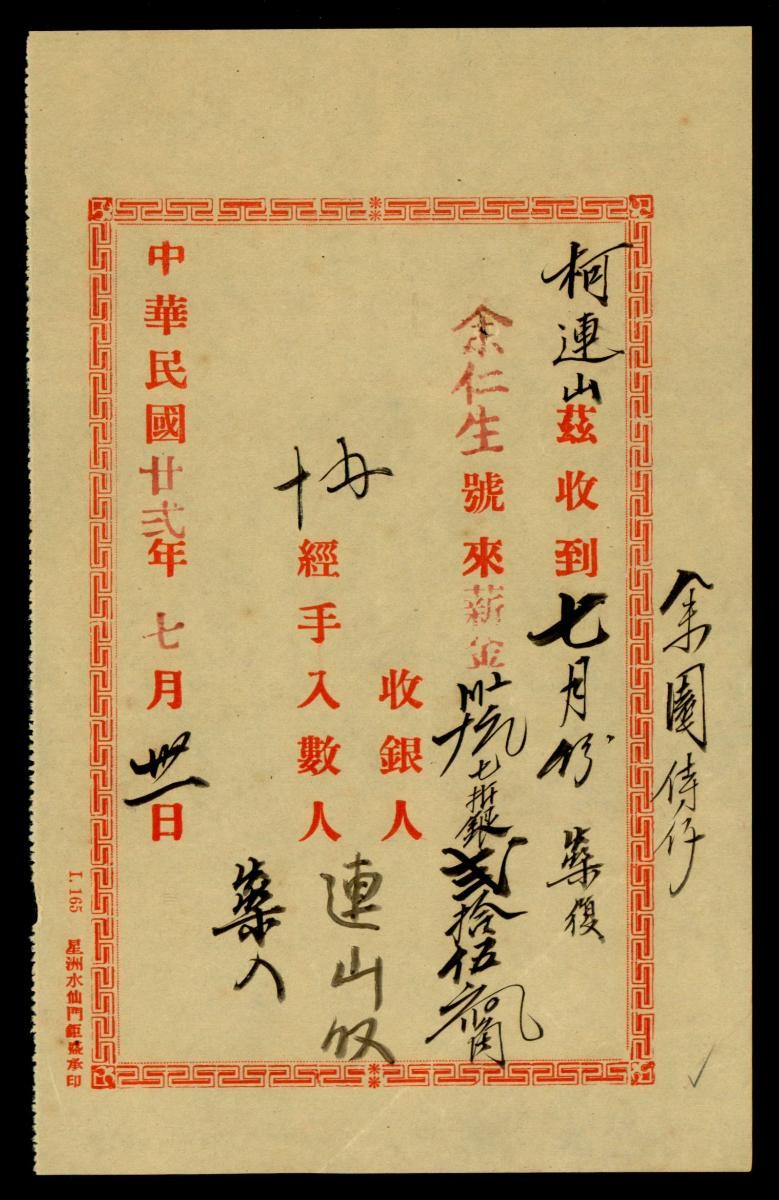 余園侍仔
柯連山茲收到七月份 葉復
余仁生號來薪金 七折銀貳拾伍元
收銀人 連山收
經手入數人 葉入
中華民國廿弍年七月卅一日
L. 165 星洲水仙門鉅盛承印